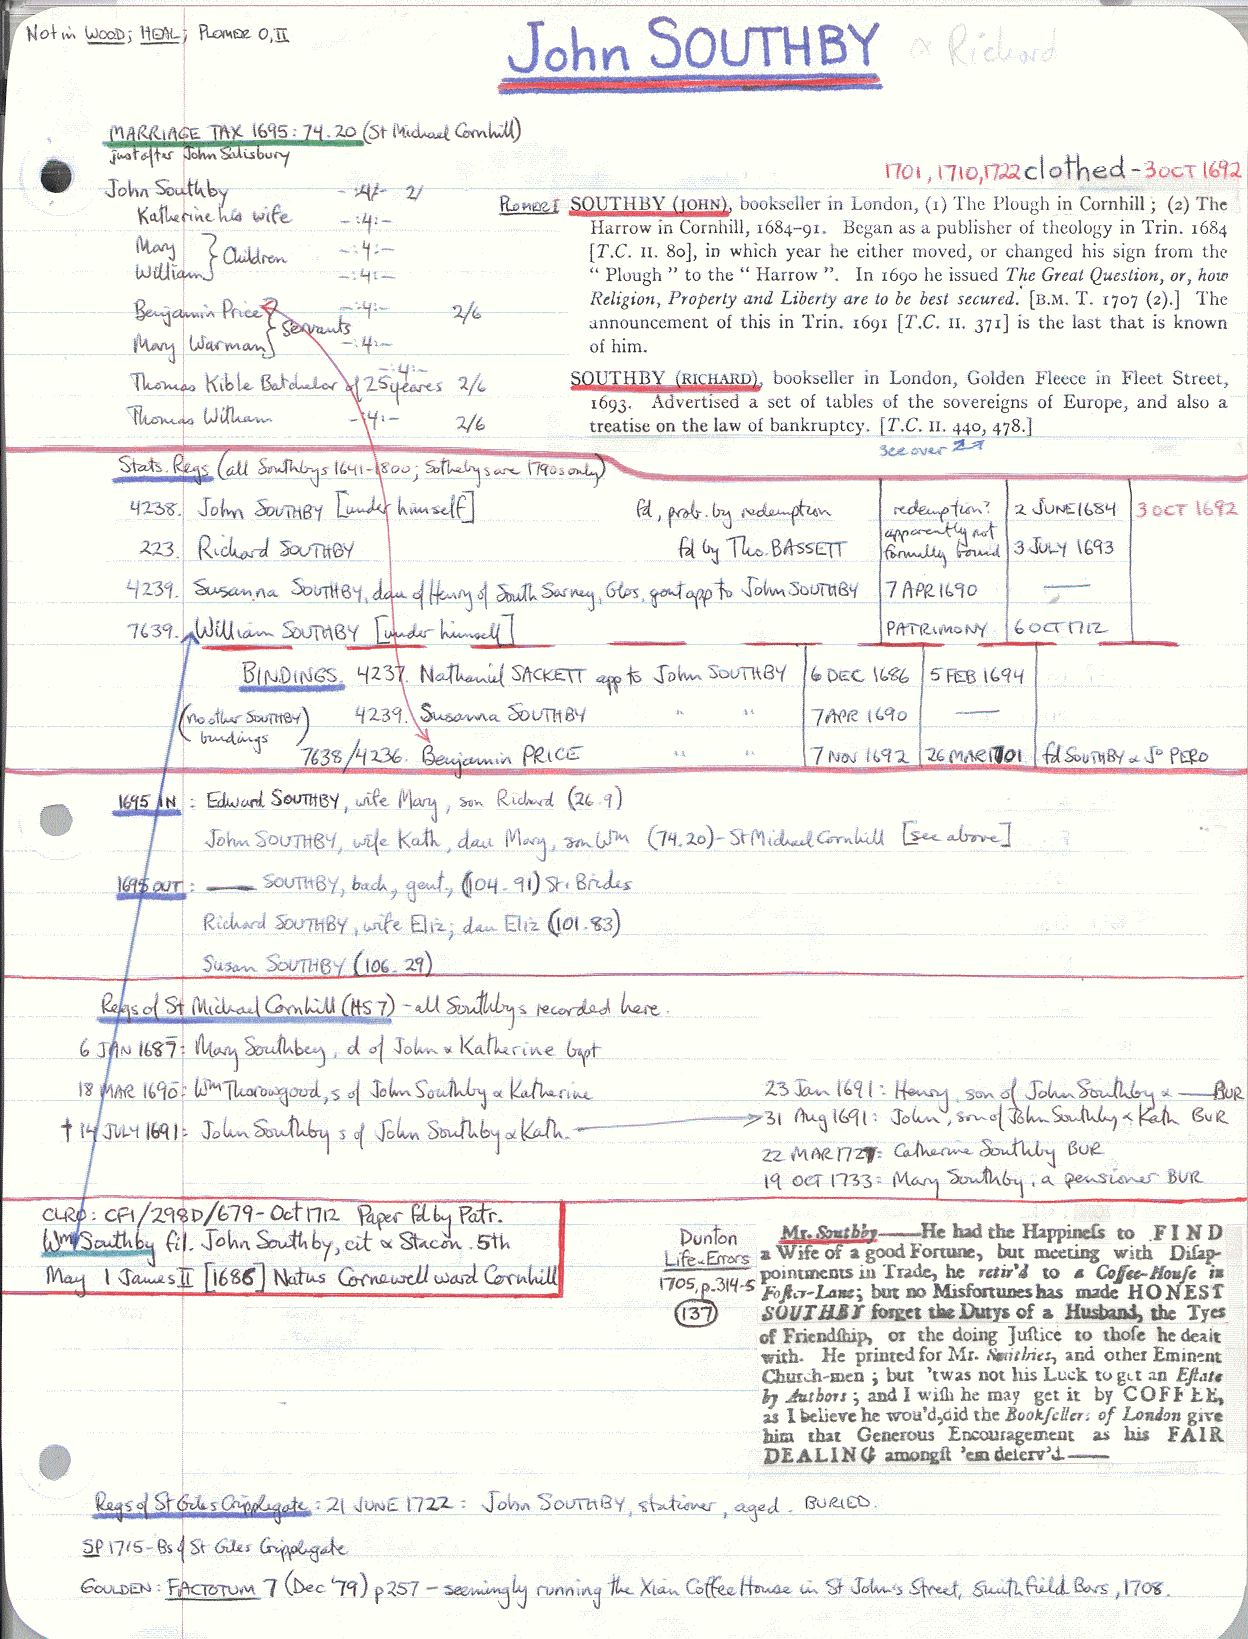 Not in WOOD; HEAL; PLOMER O, II
John SOUTHBY & Richard
MARRIAGE TAX 1695: 74.20 (St Michael Cornhill)
just after John Salisbury
John Southby -:4/- 2/
Katherine his wife -:4:-
Mary } Children -:4:-
William -:4:-
Benjamin Price } Servants -:4:- 2/6
Mary Warman -:4:-
Thomas Kible Batchelor of 25 yeares -:4:- 2/6
Thomas Witham -:4:- 2/6
1701, 1710, 1722 clothed - 3 OCT 1692
PLOMER I SOUTHBY (JOHN), bookseller in London, (1) The Plough in Cornhill; (2) The
Harrow in Cornhill, 1684-91. Began as a publisher of theology in Trin. 1684
[T.C. II. 80], in which year he either moved, or changed his sign from the
“ Plough ” to the “ Harrow ”. In 1690 he issued The Great Question, or, how
Religion, Property and Liberty are to be best secured. [B.M. T. 1707 (2).] The
announcement of this in Trin. 1691 [T.C. II. 371] is the last that is known
of him.
SOUTHBY (RICHARD), bookseller in London, Golden Fleece in Fleet Street,
1693. Advertised a set of tables of the sovereigns of Europe, and also a
treatise on the law of bankruptcy. [T.C. II. 440, 478.]
see over
Stats. Regs (all Southbys 1641-1800; Sothebys are 1790s only)
4238. John SOUTHBY [under himself] fd, prob. by redemption redemption? 2 JUNE 1684 3 OCT 1692
223. Richard SOUTHBY fd by Tho. BASSETT apparently not formally bound 3 JULY 1693
4239. Susanna SOUTHBY, dau of Henry of South Sarney, Glos, gent app to John SOUTHBY 7 APR 1690 —
7639. William SOUTHBY [under himself] PATRIMONY 6 OCT 1712
BINDINGS. 4237. Nathaniel SACKETT app to John SOUTHBY 6 DEC 1686 5 FEB 1694
(no other SOUTHBY bindings) 4239. Susanna SOUTHBY " " 7 APR 1690 —
7638/4236. Benjamin PRICE " " 7 NOV 1692 26 MAR 1701 fd SOUTHBY & Jo PERO
1695 IN : Edward SOUTHBY, wife Mary, son Richard (26.9)
John SOUTHBY, wife Kath, dau Mary, son Wm (74.20) - St Michael Cornhill [see above]
1695 OUT : — SOUTHBY, bach, gent, (104.91) St. Brides
Richard SOUTHBY, wife Eliz; dau Eliz (101.83)
Susan SOUTHBY (106.29)
Regs of St Michael Cornhill (HS 7) - all Southbys recorded here.
6 JAN 1687: Mary Southbey, d of John & Katherine bapt
18 MAR 1690: Wm Thorowgood, s of John Southby & Katherine
† 14 JULY 1691: John Southby s of John Southby & Kath.
23 Jan 1691: Henry, son of John Southby & — BUR
31 Aug 1691: John, son of John Southby & Kath BUR
22 MAR 1727: Catherine Southby BUR
19 OCT 1733: Mary Southby, a pensioner BUR
CLRO: CF1/298D/679 - Oct 1712 Paper fd by Patr.
Wm Southby fil. John Southby, cit & Stacon. 5th
May 1 James II [1685] Natus Cornewell ward Cornhill
Dunton
Life & Errors
1705, p.314-5
(137)
Mr. Southby——He had the Happiness to FIND
a Wife of a good Fortune, but meeting with Disap-
pointments in Trade, he retir'd to a Coffee-House in
Foster-Lane; but no Misfortunes has made HONEST
SOUTHBY forget the Dutys of a Husband, the Tyes
of Friendship, or the doing Justice to those he dealt
with. He printed for Mr. and other Eminent
Church-men; but 'twas not his Luck to get an Estate
by Authors; and I wish he may get it by COFFEE,
as I believe he wou'd, did the Booksellers of London give
him that Generous Encouragement as his FAIR
DEALING amongst 'em deserv'd——
Regs of St Giles Cripplegate: 21 JUNE 1722: John SOUTHBY, stationer, aged. BURIED.
SP 1715 - Bs of St Giles Cripplegate
GOULDEN: FACTOTUM 7 (Dec '79) p257 - seemingly running the Xian Coffee House in St John's Street, Smithfield Bars, 1708.